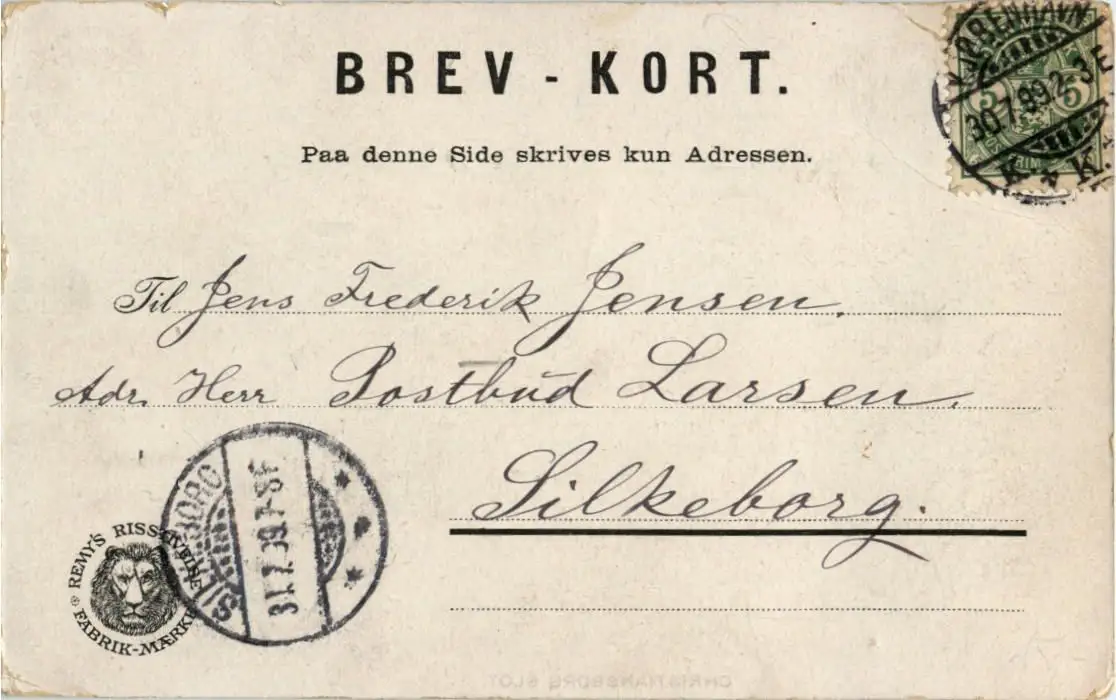 BREV-KORT.
KJØBENHAVN
30.7.99 2-3E
K. K.
5 5
Paa denne Side skrives kun Adressen.
Til Jens Frederik Jensen.
Adr. Herr Postbud Larsen.
Silkeborg.
SILKEBORG
31.7.99 7-8F
REMY'S RISSTIVELSE
FABRIK-MÆRKE
CHRISTIANSBORG SLOT